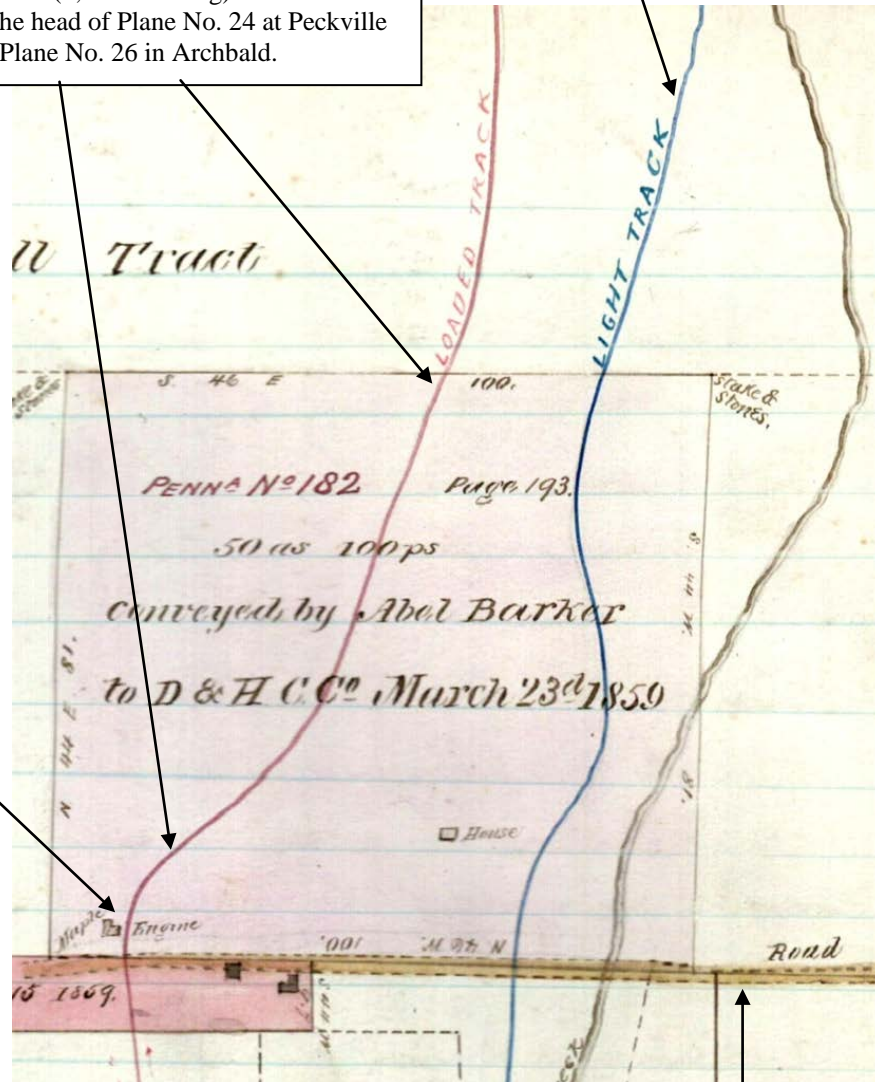 he head of Plane No. 24 at Peckville
Plane No. 26 in Archbald.
LOADED TRACK
LIGHT TRACK
ll Tract
S. 46 E 100.
stake &
stones.
PENNA No 182 Page 193.
50 as 100 ps
conveyed by Abel Barker
to D & H C Co March 23d 1859
N 44 E 81.
S. 44 W.
81.
House
Maple
Engine
100.
N 46 W.
Road
15 1859.